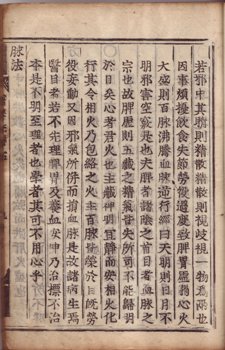 若邪中其睛則精散精散則視歧視一物爲兩也
因事煩擾飲食失節勞役過度致脾胃虛弱心火
大盛則百脉沸騰血脉逆行經曰天明則日月不
明邪害空竅是也夫脾者諸陰之首目者血脉之
宗也故脾虛則五藏之精氣皆失所司不能歸明
於目矣心者君火也主藏神明宜靜而安相火化
行其令相火乃包絡之火主百脉皆榮於目既勞
役妄動又因邪氣所併而損血脉是故諸病生焉
醫目者若不先理脾胃及養血安神乃治標不治
本是不明至理者也學者其可不用心乎
脉法